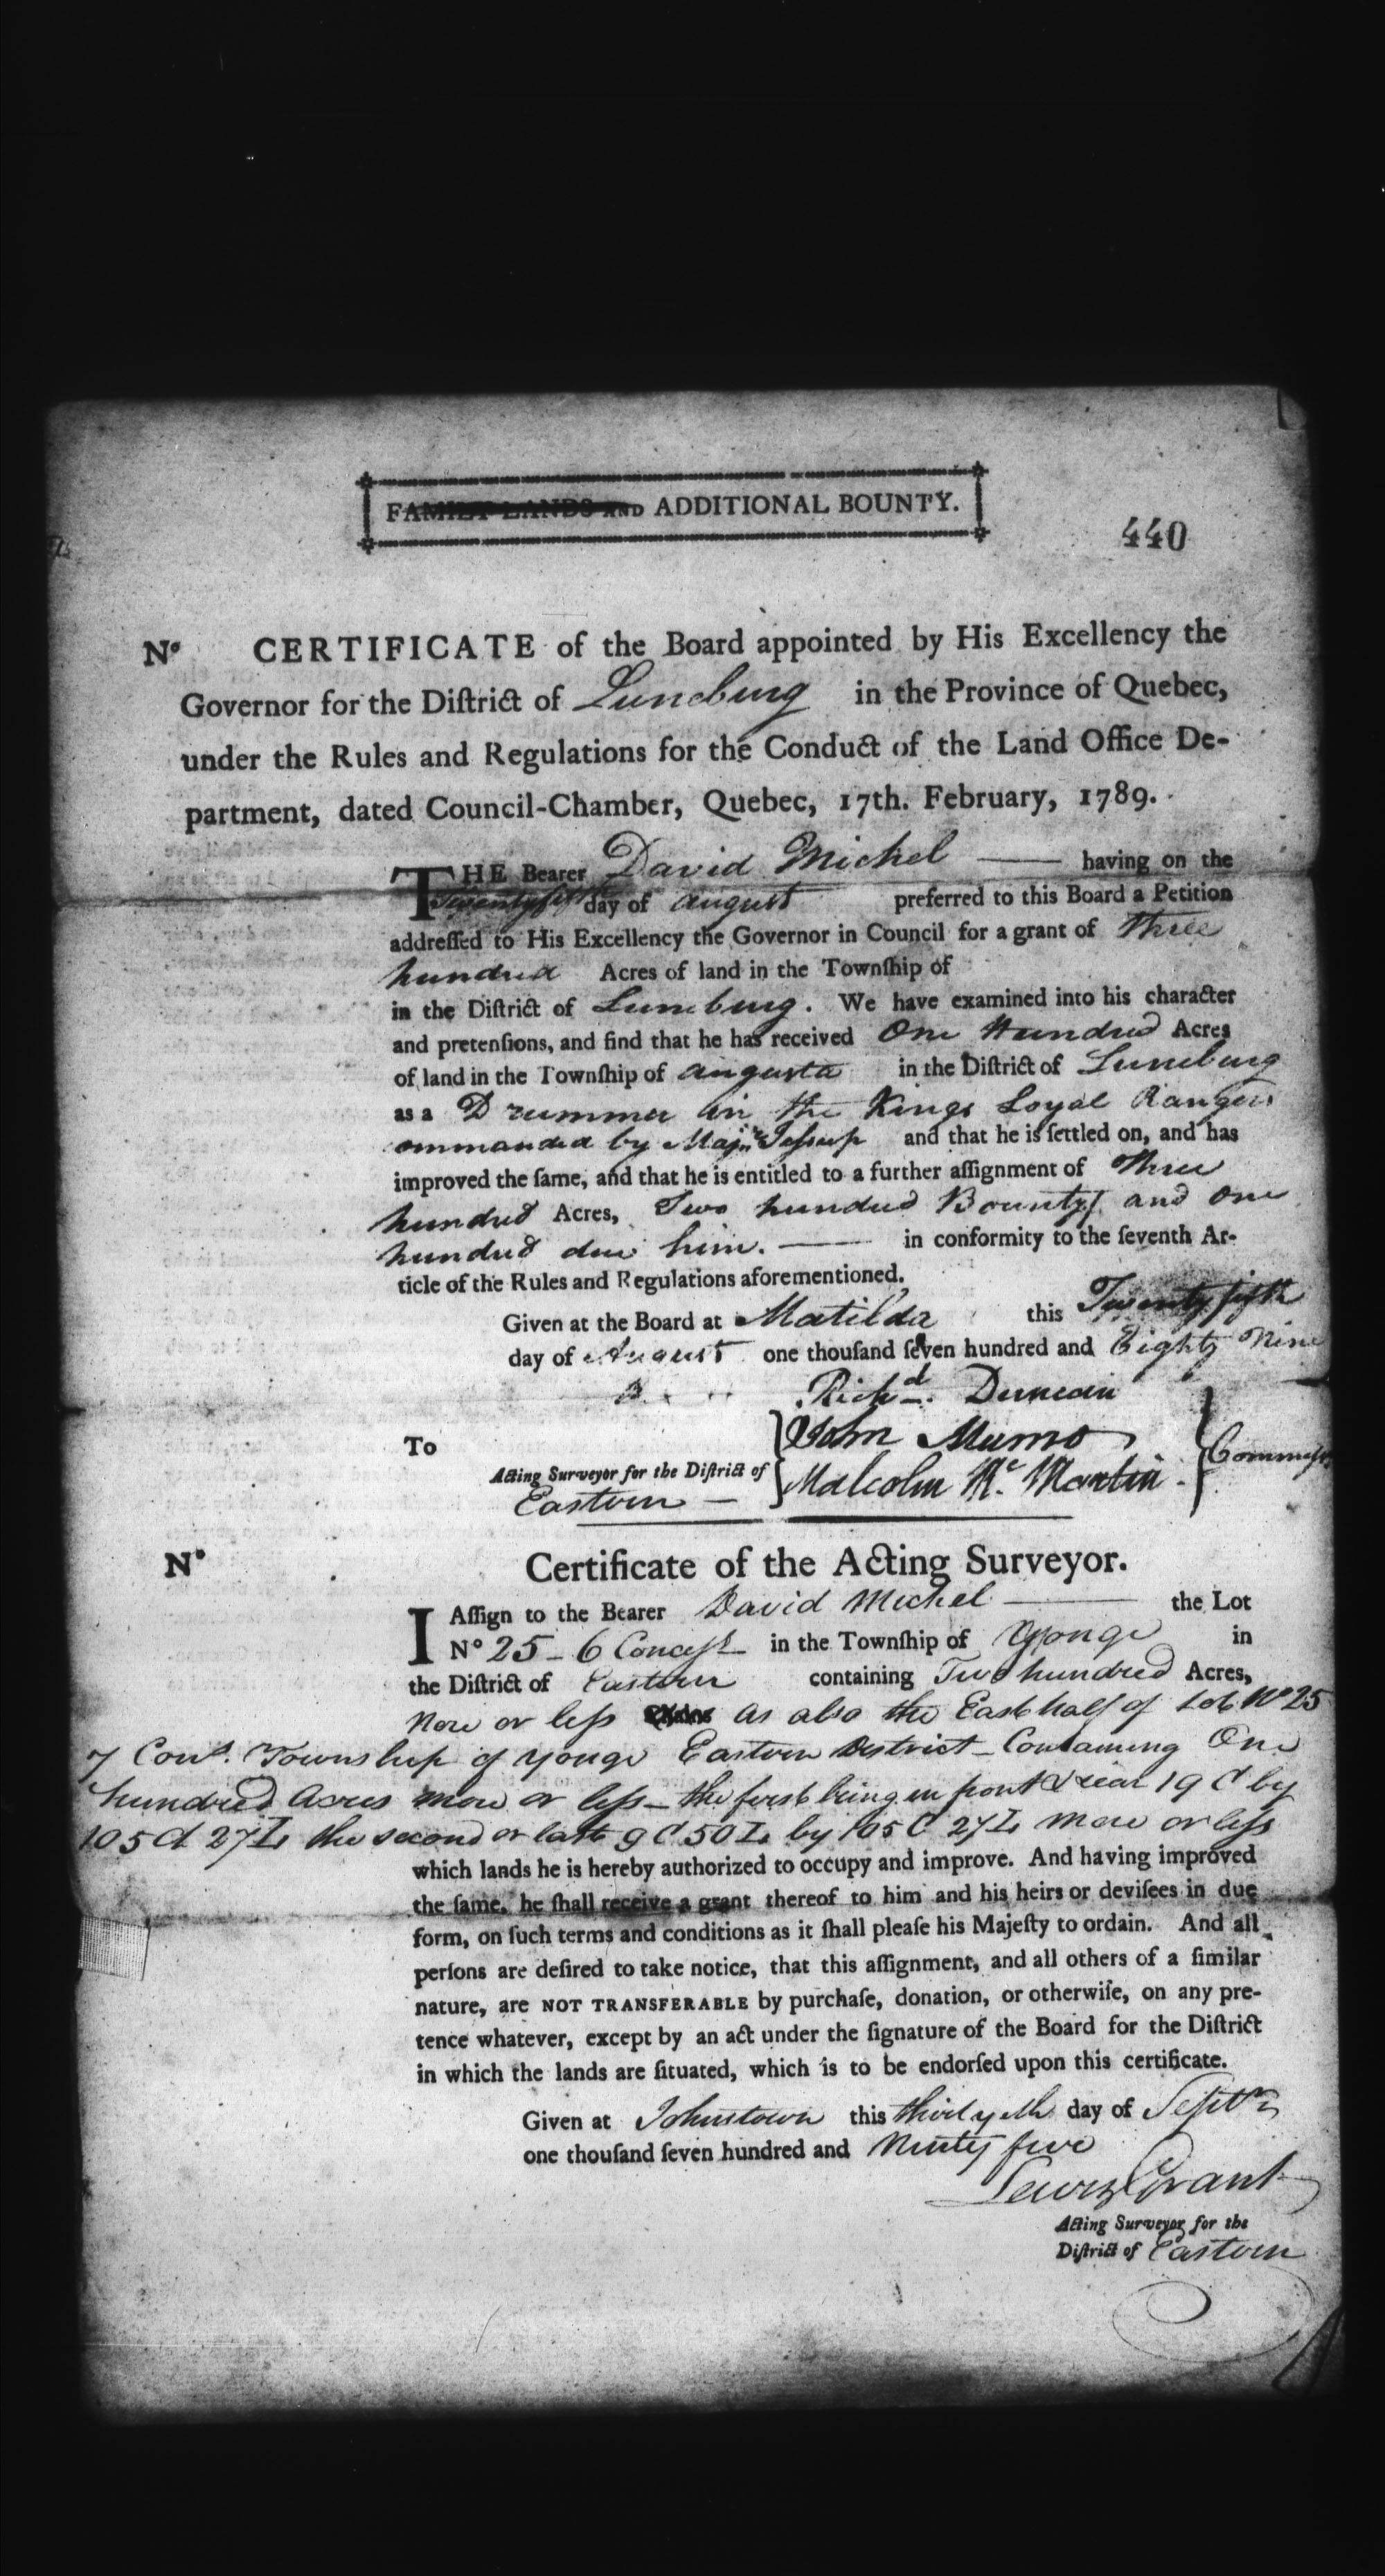 FAMILY LANDS AND ADDITIONAL BOUNTY.
440
Nº CERTIFICATE of the Board appointed by His Excellency the
Governor for the Diſtrict of Luneburg in the Province of Quebec,
under the Rules and Regulations for the Conduct of the Land Office De-
partment, dated Council-Chamber, Quebec, 17th. February, 1789.
THE Bearer David Michel — having on the
Twenty fifth day of august preferred to this Board a Petition
addreſſed to His Excellency the Governor in Council for a grant of three
hundred Acres of land in the Townſhip of
in the Diſtrict of Luneburg. We have examined into his character
and pretenſions, and find that he has received One Hundred Acres
of land in the Townſhip of augusta in the Diſtrict of Luneburg
as a Drummer in the Kings Loyal Rangers
ommanded by Majr. Jeſsup and that he is ſettled on, and has
improved the ſame, and that he is entitled to a further aſſignment of three
hundred Acres, Two hundred Bounty and one
hundred due him. — in conformity to the ſeventh Ar-
ticle of the Rules and Regulations aforementioned.
Given at the Board at Matilda this Twenty fifth
day of August one thouſand ſeven hundred and Eighty Nine
Richd. Duncan
To
John Munro
Commiſs
Acting Surveyor for the Diſtrict of
Malcolm Mc. Martin
Eastern —
Nº Certificate of the Acting Surveyor.
I Aſſign to the Bearer David Michel — the Lot
Nº 25 – 6 Conceſs in the Townſhip of Yonge in
the Diſtrict of Eastern containing Two hundred Acres,
More or leſs as also the East half of Lot Nº 25
7 Cons. Township of Yonge Eastern District – Containing One
hundred Acres more or leſs – the first being in front & rear 19 C by
105 C 27 L the second or last 9 C 50 L by 105 C 27 L more or leſs
which lands he is hereby authorized to occupy and improve. And having improved
the ſame, he ſhall receive a grant thereof to him and his heirs or deviſees in due
form, on ſuch terms and conditions as it ſhall pleaſe his Majeſty to ordain. And all
perſons are deſired to take notice, that this aſſignment, and all others of a ſimilar
nature, are NOT TRANSFERABLE by purchaſe, donation, or otherwiſe, on any pre-
tence whatever, except by an act under the ſignature of the Board for the Diſtrict
in which the lands are ſituated, which is to be endorſed upon this certificate.
Given at Johnstown this thirtyeth day of Septbr
one thouſand ſeven hundred and Ninty five
Lewis Grant
Acting Surveyor for the
Diſtrict of Eastern